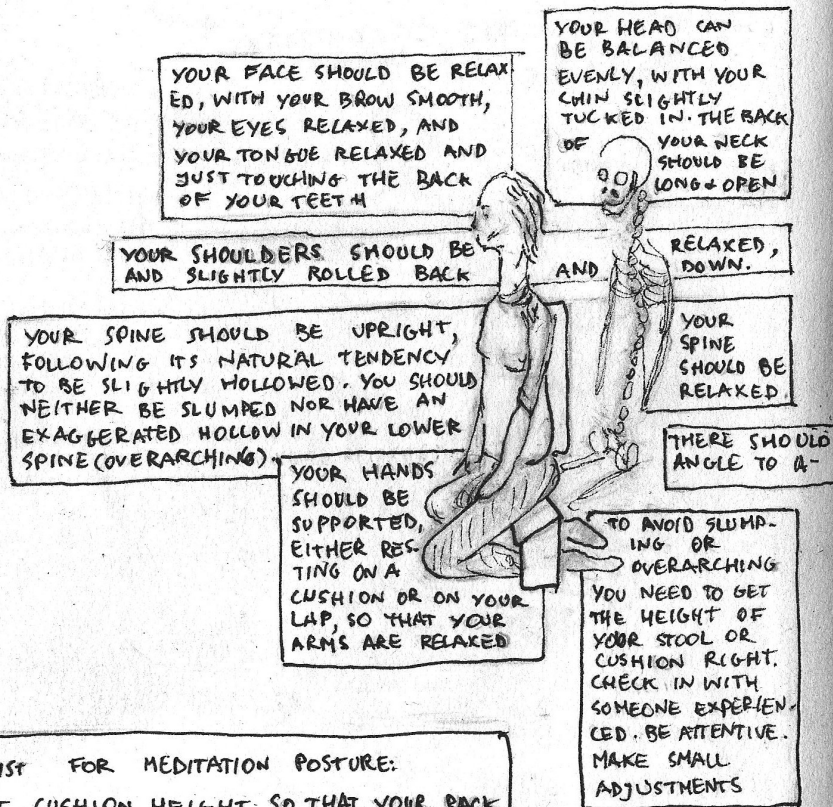 YOUR HEAD CAN
BE BALANCED
EVENLY, WITH YOUR
CHIN SLIGHTLY
TUCKED IN. THE BACK
OF YOUR NECK
SHOULD BE
LONG & OPEN
YOUR FACE SHOULD BE RELAX
ED, WITH YOUR BROW SMOOTH,
YOUR EYES RELAXED, AND
YOUR TONGUE RELAXED AND
JUST TOUCHING THE BACK
OF YOUR TEETH
YOUR SHOULDERS SHOULD BE RELAXED,
AND SLIGHTLY ROLLED BACK AND DOWN.
YOUR SPINE SHOULD BE UPRIGHT,
FOLLOWING ITS NATURAL TENDENCY
TO BE SLIGHTLY HOLLOWED. YOU SHOULD
NEITHER BE SLUMPED NOR HAVE AN
EXAGGERATED HOLLOW IN YOUR LOWER
SPINE (OVERARCHING).
YOUR
SPINE
SHOULD BE
RELAXED.
THERE SHOULD
ANGLE TO A-
YOUR HANDS
SHOULD BE
SUPPORTED,
EITHER RES-
TING ON A
CUSHION OR ON YOUR
LAP, SO THAT YOUR
ARMS ARE RELAXED
TO AVOID SLUMP-
ING OR
OVERARCHING
YOU NEED TO GET
THE HEIGHT OF
YOUR STOOL OR
CUSHION RIGHT.
CHECK IN WITH
SOMEONE EXPERIEN-
CED. BE ATTENTIVE.
MAKE SMALL
ADJUSTMENTS
FOR MEDITATION POSTURE:
CUSHION HEIGHT SO THAT YOUR BACK